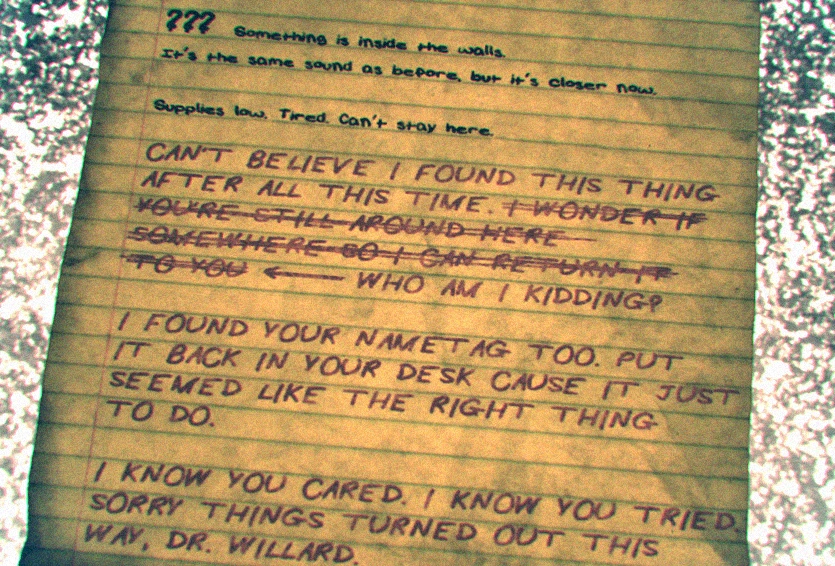 ??? Something is inside the walls.
It's the same sound as before, but it's closer now.
Supplies low. Tired. Can't stay here.
CAN'T BELIEVE I FOUND THIS THING
AFTER ALL THIS TIME. I WONDER IF
YOU'RE STILL AROUND HERE
SOMEWHERE SO I CAN RETURN IT
TO YOU ← WHO AM I KIDDING?
I FOUND YOUR NAMETAG TOO. PUT
IT BACK IN YOUR DESK CAUSE IT JUST
SEEMED LIKE THE RIGHT THING
TO DO.
I KNOW YOU CARED. I KNOW YOU TRIED.
SORRY THINGS TURNED OUT THIS
WAY, DR. WILLARD.